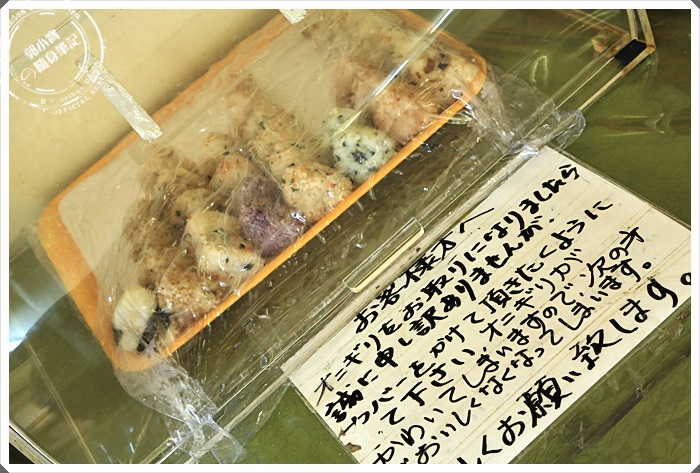 お客様方へ
オニギリをお取りになりましたら
誠に申し訳ありませんが、
カバーをかけて頂きたくように
して下さい。オニギリが
かわいてしまいますので、次の方
がおいしくなくなってしまいます。
しくお願い致します。